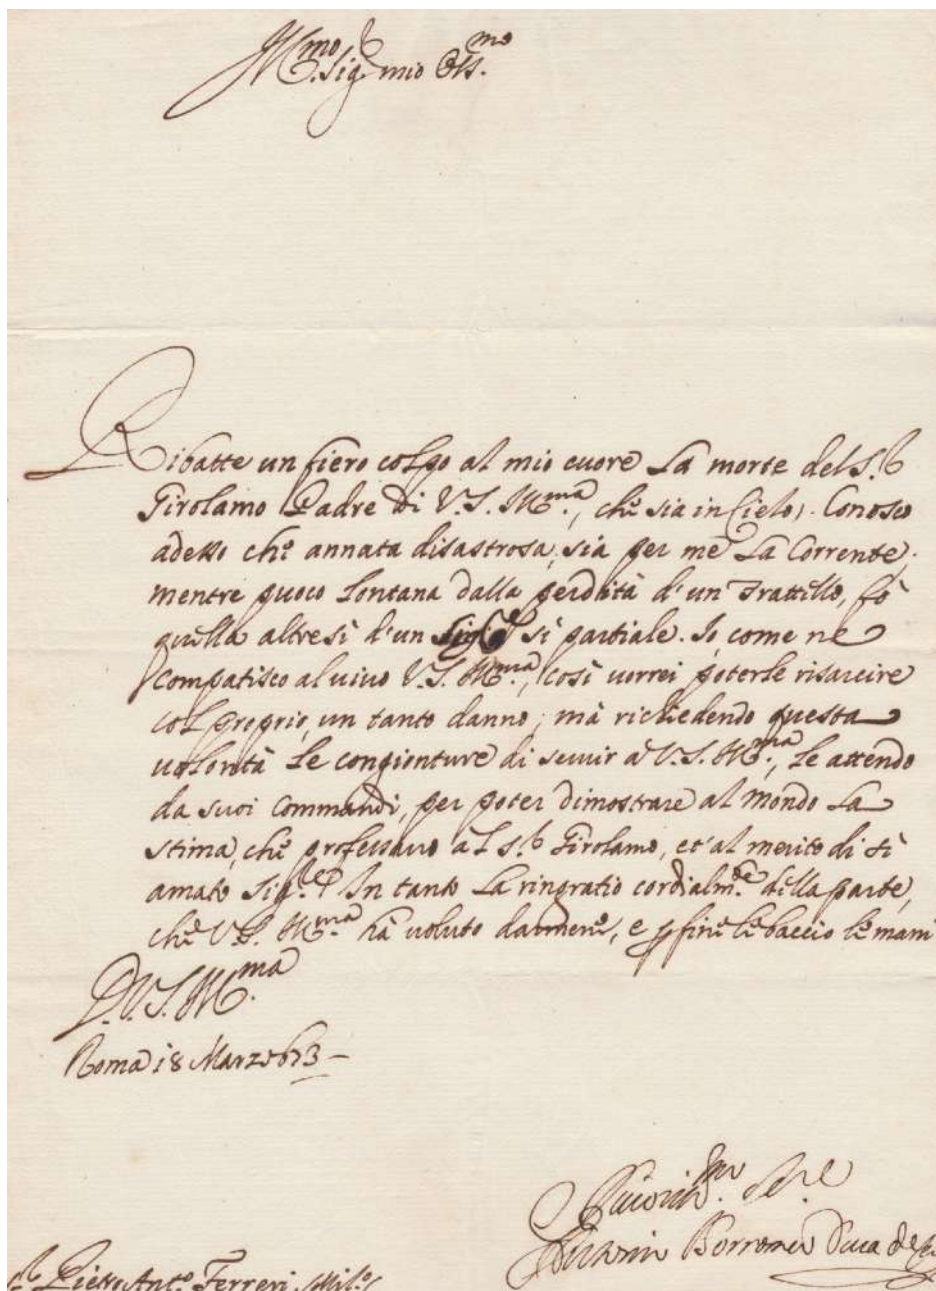 Ill.mo Sig.r mio Oss.mo
Ribatte un fiero colpo al mio cuore la morte del S.r
Girolamo Padre di V.S. Ill.ma, che sia in Cielo. Conosco
adesso che annata disastrosa, sia per me la Corrente,
mentre puoco lontana dalla perdita d'un Frattello, fò
quella altresì d'un si partiale. Io, come ne
compatisco al uiuo V.S. Ill.ma, così uorrei poterle risarcire
col proprio, un tanto danno; mà richiedendo questa
uolontà le congionture di seruir à V.S. Ill.ma, le attendo
da suoi Commandi, per poter dimostrare al Mondo la
stima, che professauo al S.r Girolamo, et al merito di sì
amato Sig.re In tanto la ringratio cordialm.te della parte,
che V.S. Ill.ma hà uoluto darmene, e p fine le baccio le mani
D.V.S. Ill.ma
Roma 18 Marzo 673
Borromeo Duca
Pietro Ant.o Ferreri Mil.o